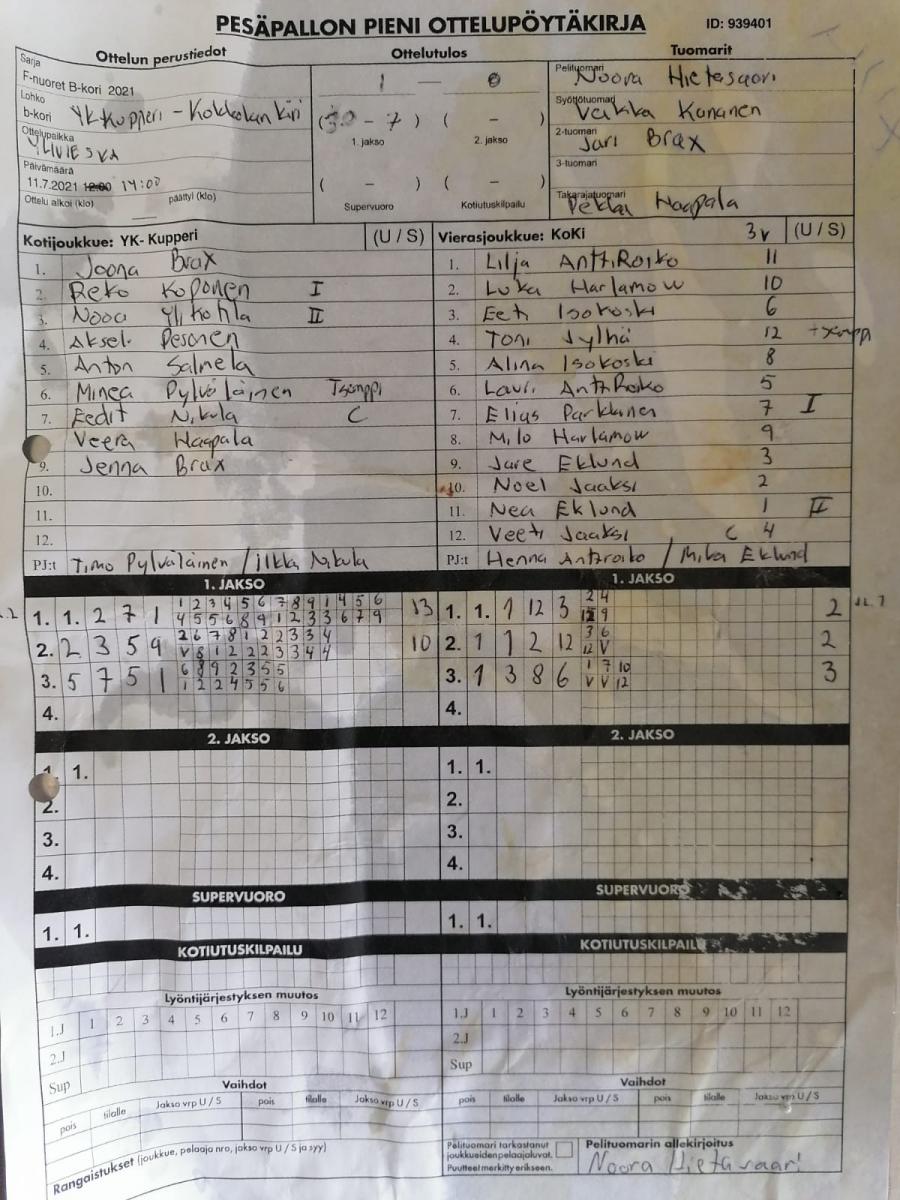 PESÄPALLON PIENI OTTELUPÖYTÄKIRJA ID: 939401
Ottelun perustiedot Ottelutulos Tuomarit
Sarja
F-nuoret B-Kori 2021 1 — 0
Pelituomari Noora Hietasaari
Lohko
b-kori YK-Kupperi - Kokkolan kiri
(30 - 7) ( - )
Syöttötuomari Veikka Kananen
1. jakso 2. jakso
Ottelupaikka
YLIVIESKA
2-tuomari Jari Brax
Päivämäärä
11.7.2021 12:00 14:00
( - ) ( - )
3-tuomari
Ottelu alkoi (klo) päättyi (klo)
Supervuoro Kotiutuskilpailu
Takarajatuomari Pekka Haapala
Kotijoukkue: YK- Kupperi (U / S) Vierasjoukkue: KoKi 3v (U / S)
1. Joona Brax 1. Lilja AnttiRoiko 11
2. Reko Koponen I 2. Luka Harlamow 10
3. Nooa Ylikotila II 3. Eeti Isokoski 6
4. Aksel Pesonen 4. Toni Jylhä 12 +tsemppi
5. Anton Salmela 5. Alina Isokoski 8
6. Minea Pylväläinen Tsemppi 6. Lauri AnttiRoiko 5
7. Eedit Nikula C 7. Elias Parkkinen 7 I
Veera Haapala 8. Milo Harlamow 9
9. Jenna Brax 9. Jare Eklund 3
10. 10. Noel Jaaksi 2
11. 11. Nea Eklund 1 II
12. 12. Veeti Jaaksi C 4
PJ:t Timo Pylväläinen / Ilkka Nikula PJ:t Henna Anttiroiko / Mika Eklund
1. JAKSO 1. JAKSO
1 2 3 4 5 6 7 8 9 1 4 5 6 2 4
1. 1. 2 7 1 13 1. 1. 1 12 3 2
4 5 5 6 8 9 1 2 3 3 6 7 9 9
2 6 7 8 1 2 2 3 3 4 3 6
2. 2 3 5 9 10 2. 1 1 2 12 2
V 8 1 2 2 2 3 3 4 4 12 V
6 8 9 2 3 5 5 1 7 10
3. 5 7 5 1 3. 1 3 8 6 3
1 2 2 4 5 5 6 V V 12
4. 4.
2. JAKSO 2. JAKSO
1. 1. 1. 1.
2. 2.
3. 3.
4. 4.
SUPERVUORO SUPERVUORO
1. 1. 1. 1.
KOTIUTUSKILPAILU KOTIUTUSKILPAILU
Lyöntijärjestyksen muutos Lyöntijärjestyksen muutos
1.J 1 2 3 4 5 6 7 8 9 10 11 12 1.J 1 2 3 4 5 6 7 8 9 10 11 12
2.J 2.J
Sup Sup
Vaihdot Vaihdot
pois tilalle Jakso vrp U / S pois tilalle Jakso vrp U / S pois tilalle Jakso vrp U / S pois tilalle Jakso vrp U / S
Rangaistukset (joukkue, pelaaja nro, jakso vrp U / S ja syy)
Pelituomari tarkastanut
joukkueiden pelaajaluvat.
Puutteet merkitty erikseen.
Pelituomarin allekirjoitus
Noora Hietasaari